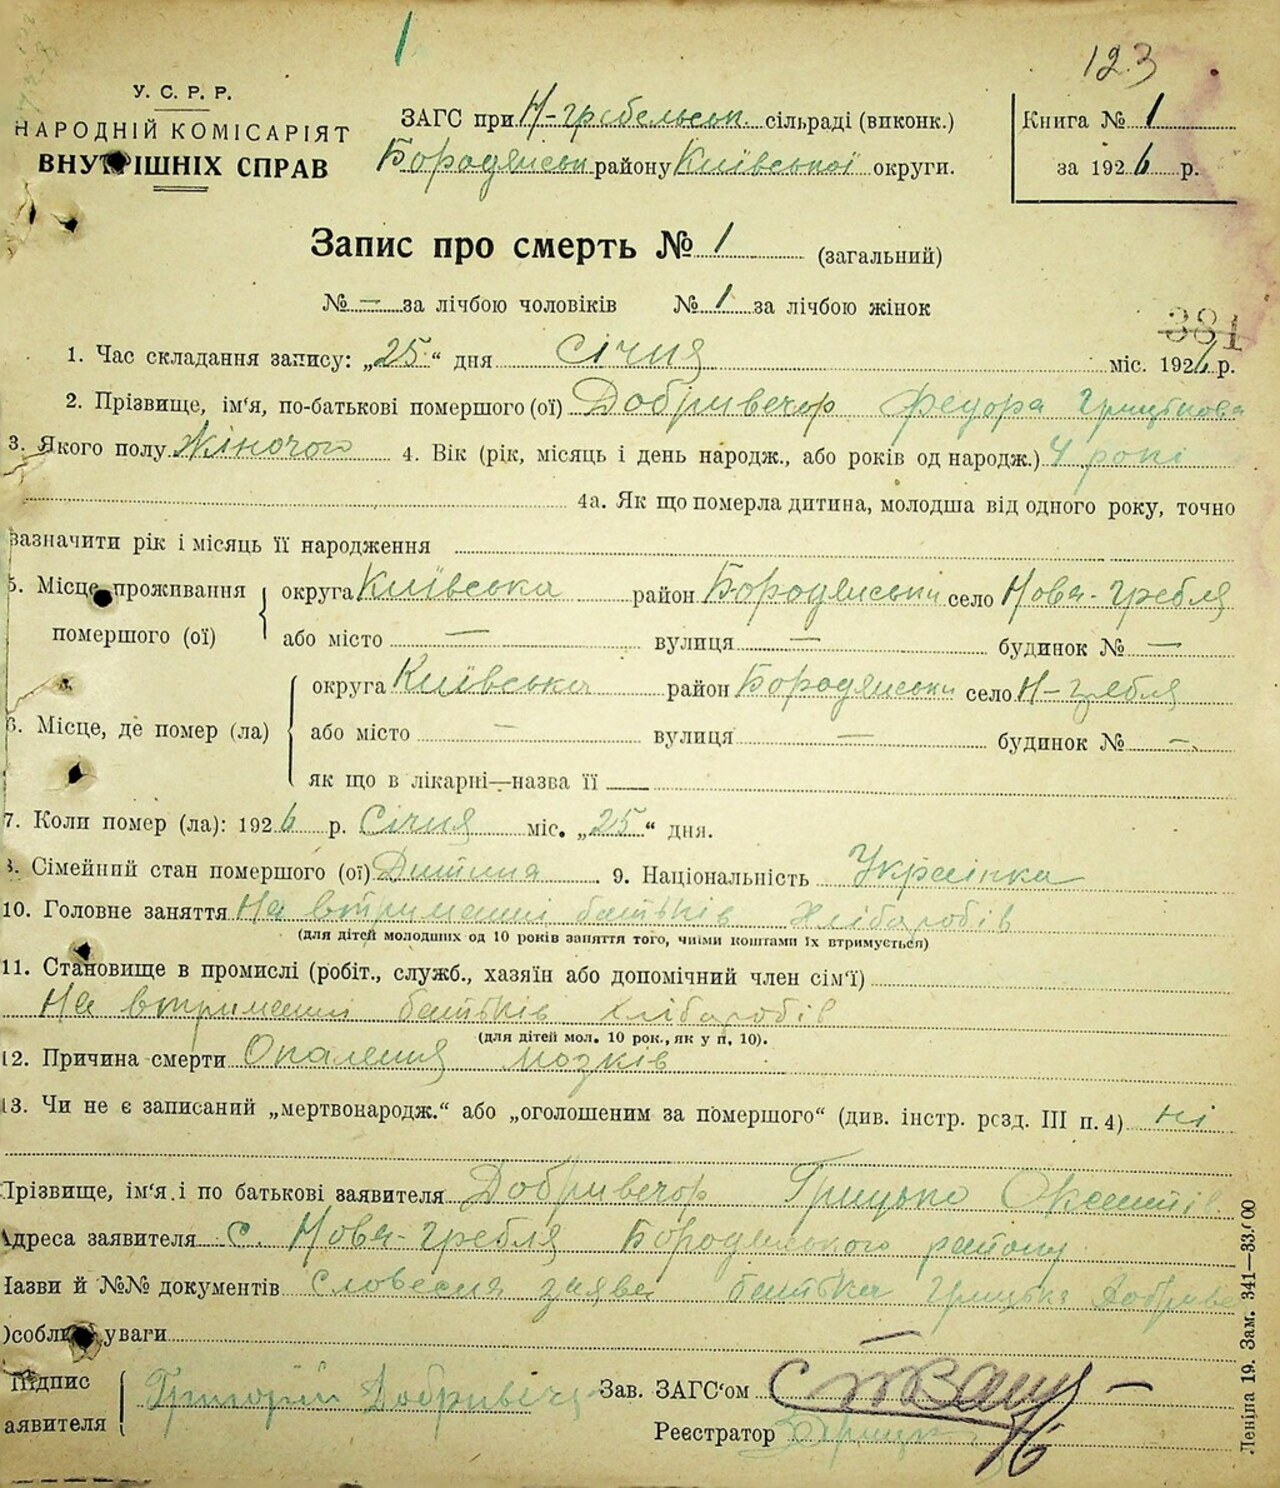 1
123
У. С. Р. Р.
НАРОДНІЙ КОМІСАРІЯТ
ВНУТРІШНІХ СПРАВ
ЗАГС при Н-гребельськ сільраді (виконк.)
Бородянськ району Київської округи.
Книга № 1
за 1926 р.
Запис про смерть № 1 (загальний)
№ — за лічбою чоловіків № 1 за лічбою жінок
381
1. Час складання запису: „25“ дня Січня міс. 1926 р.
2. Прізвище, ім'я, по-батькові помершого (ої) Добривечор Федора Грицькова
3. Якого полу Жіночого 4. Вік (рік, місяць і день народж., або років од народж.) 4 рокі
4а. Як що померла дитина, молодша від одного року, точно
зазначити рік і місяць її народження
5. Місце проживання помершого (ої) округа Київська район Бородянськи село Нова-гребля
або місто — вулиця — будинок № —
6. Місце, де помер (ла) округа Київська район Бородянськи село Н-гребля
або місто — вулиця — будинок № —
як що в лікарні—назва її
7. Коли помер (ла): 1926 р. Січня міс. „25“ дня.
8. Сімейний стан помершого (ої) Дитина 9. Національність Украінка
10. Головне заняття На втриманні батьків Хліборобів
(для дітей молодших од 10 років заняття того, чиїми коштами їх втримується)
11. Становище в промислі (робіт., служб., хазяїн або допомічний член сім'ї)
На втриманні батьків хліборобів
(для дітей мол. 10 рок., як у п. 10).
12. Причина смерти Опалення мозків
13. Чи не є записаний „мертвонародж.“ або „оголошеним за помершого“ (див. інстр. розд. III п. 4) ні
Прізвище, ім'я і по батькові заявителя Добривечор Грицько
Адреса заявителя с. Нова-гребля Бородянського району
Назви й №№ документів Словесна заява батька Грицька Добриве
Особливі уваги
Підпис заявителя Григорій Добривеч
Зав. ЗАГС'ом
Реєстратор
Леніна 19. Зам. 341—33.000